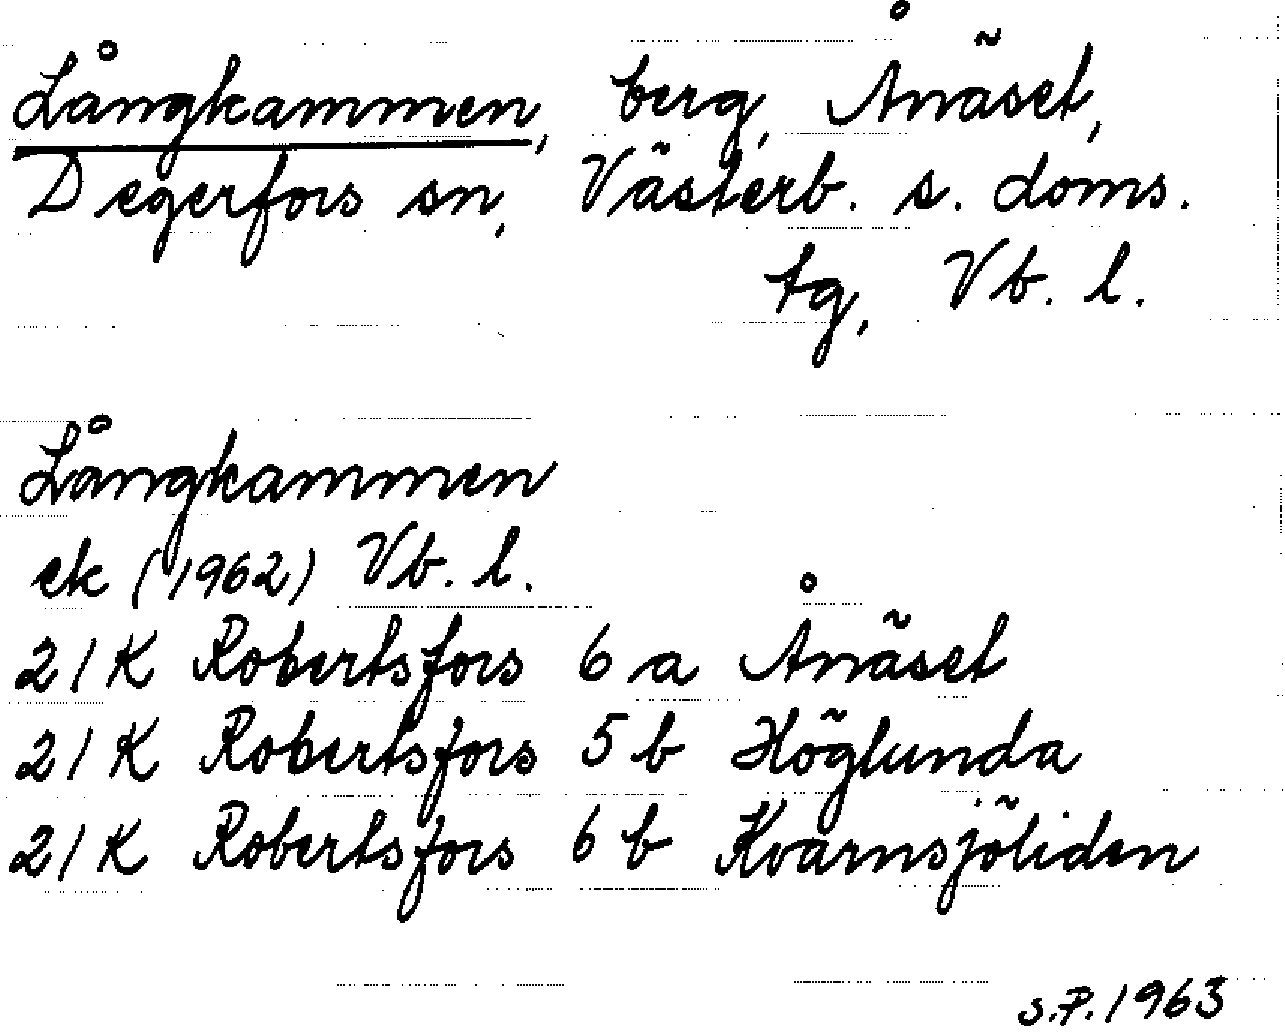 Långkammen, berg, Ånäset,
Degerfors sn, Västerb. s. doms.
tg, Vb. l.
Långkammen
ek (1962) Vb. l.
21K Robertsfors 6a Ånäset
21K Robertsfors 5b Höglunda
21K Robertsfors 6b Kvarnsjöliden
S.P. 1963